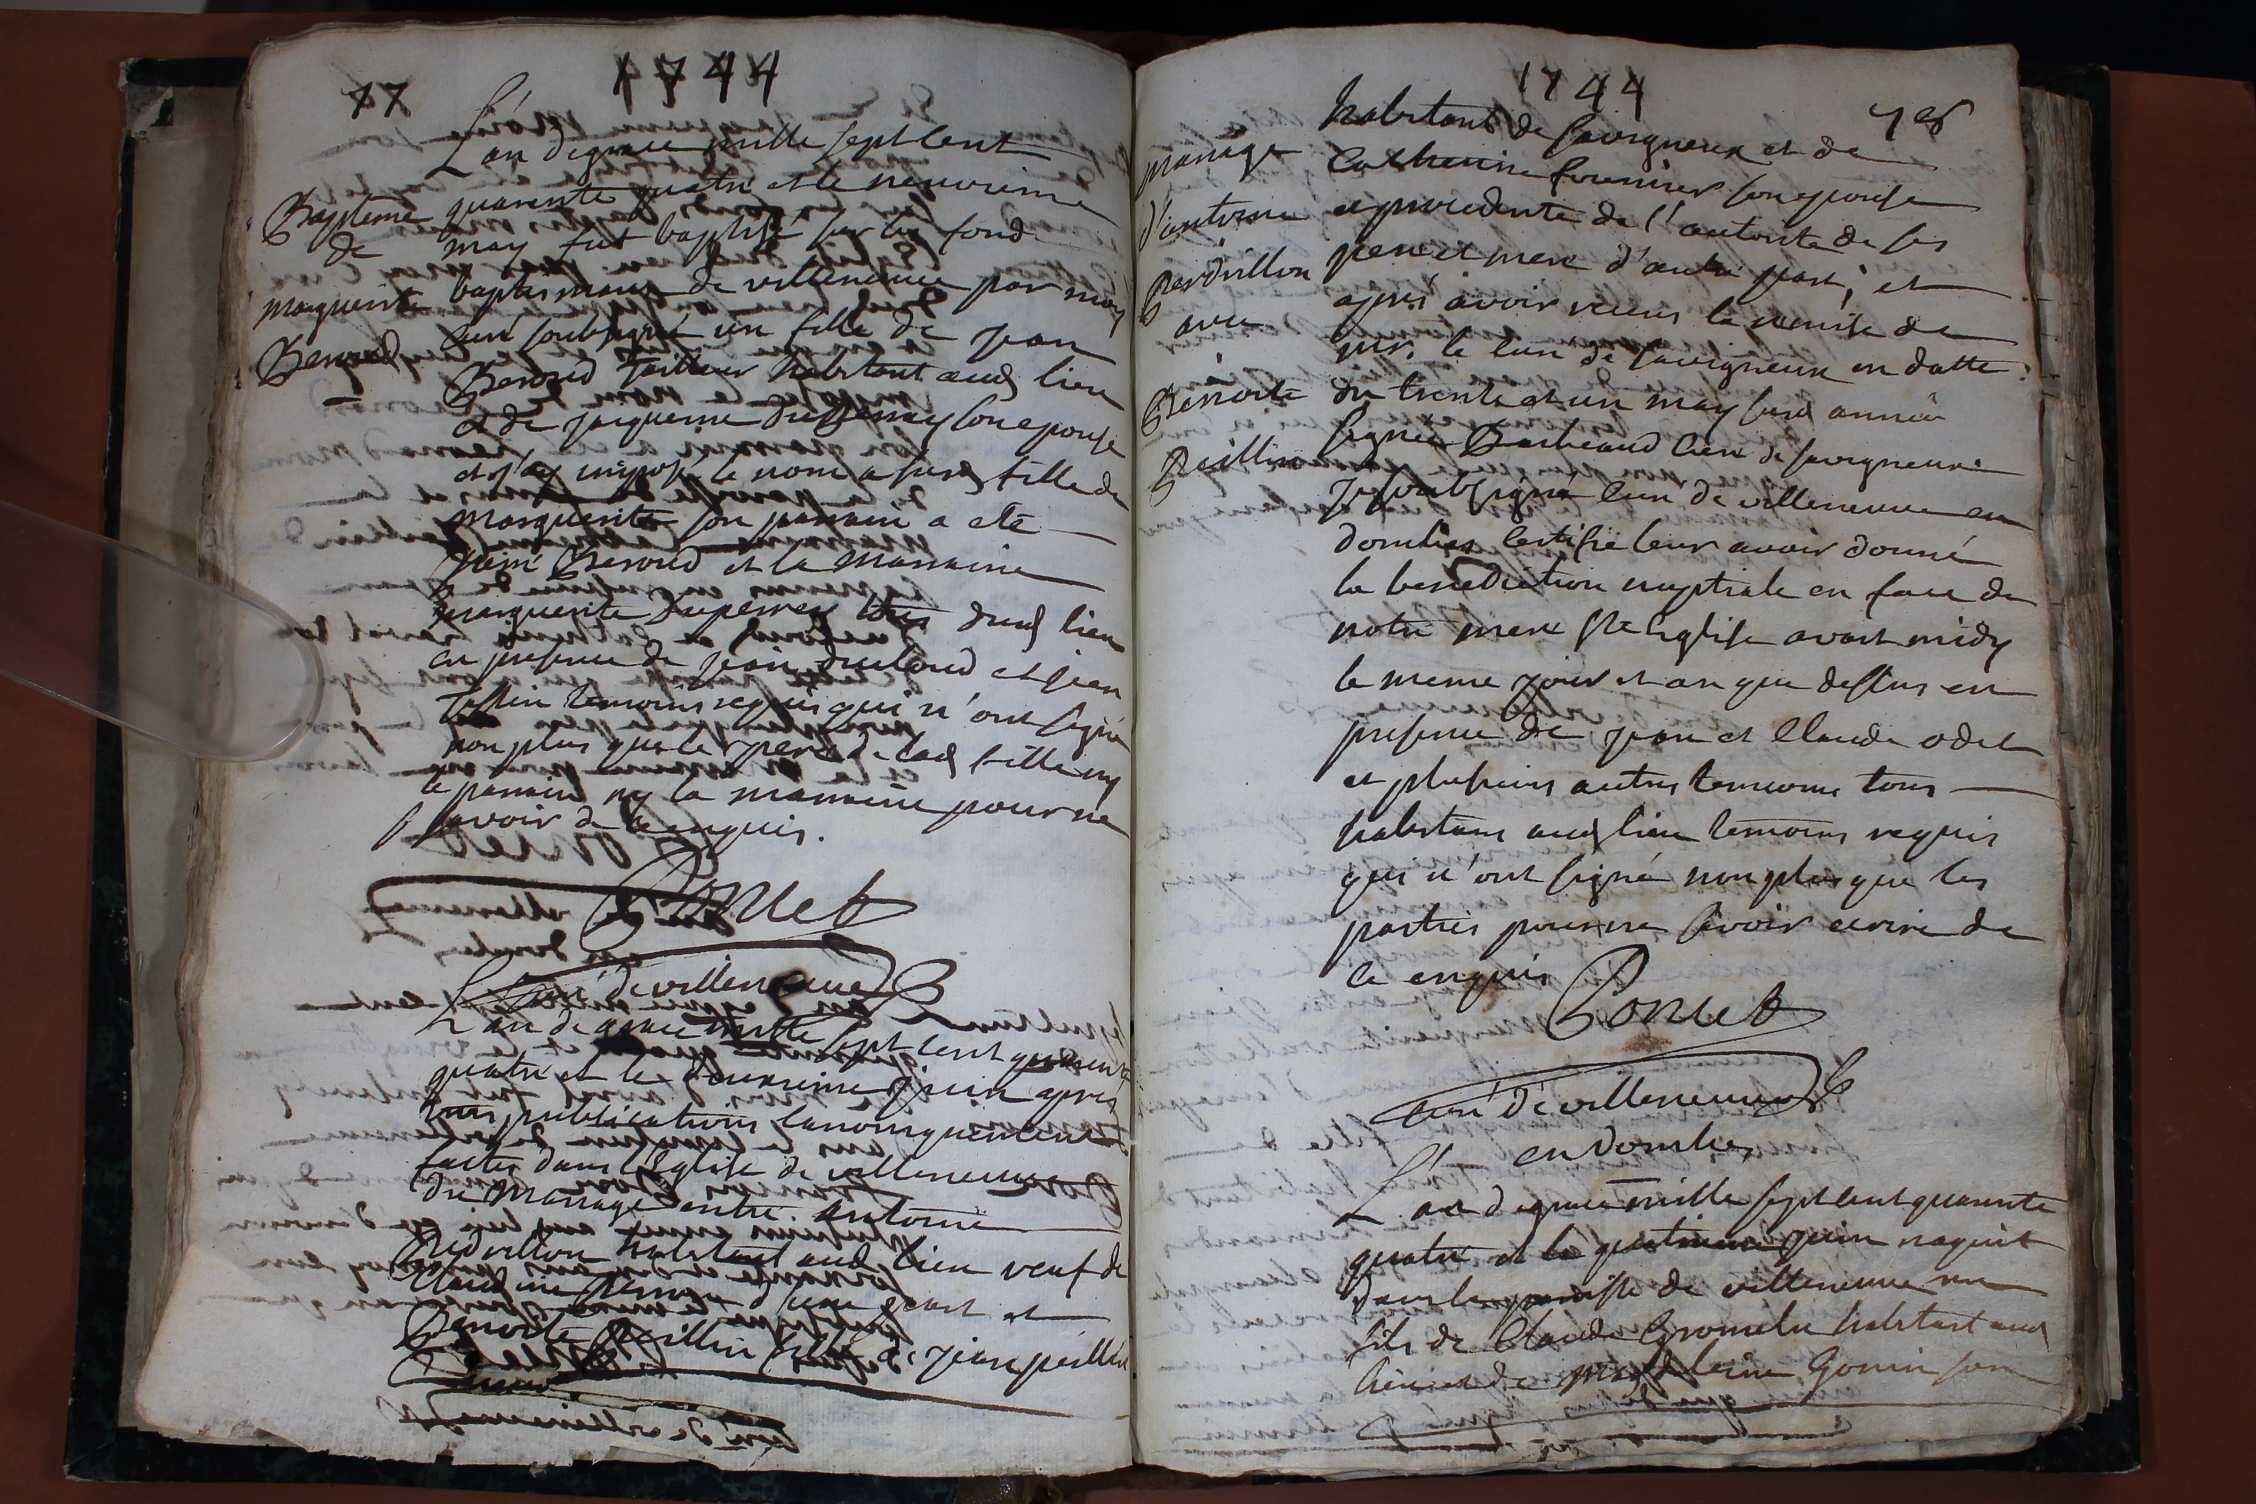 77
1744
L'an de grace mille sept cent
quarante quatre et le neuvieme
may fut baptisé sur les fond
baptismaux de villeneuve par moy
curé soubsigné un fille de jean
Beroud tailleur habitant aud lieu
et de jaqueme Duperray son epouse
et j'ay imposé le nom a lad fille de
marguerite son parrain a eté
jean Beroud et la marraine
marguerite Duperray tous dud lieu
en presence de jean et jean
temoins requis qui n'ont signé
non plus que le pere de lad fille ny
le parrain ny la marraine pour ne
savoir de ce enquis.
Baptême
de
marguerite
Beroud
Poncet
Curé de villeneuve
L'an de grace mille sept cent quarante
quatre et le douzieme juin apres
trois publications canoniquement
faites dans l'Eglise de villeneuve
du Mariage entre Antoine
habitant aud lieu veuf de
Claudine d'une part et
Benoite Peillin fille de jean peillin
1744
78
mariage
d'antoine
avec
Benoite
Peillin
habitant de savigneux et de
Catherine fournier son epouse
et procedente de l'autorité de ses
pere et mere d'autre part; et
apres avoir receus la remise de
mr. le curé de savigneux en datte
du trente et un may susd année
signée Barbeaud curé de savigneux
je soubsigné curé de villeneuve en
dombes certifie leur avoir donné
la benediction nuptiale en face de
notre mere Ste Eglise avant midy
le meme jour et an que dessus en
presence de jean et Claude odet
et plusieurs autres temoins tous
habitans aud lieu temoins requis
qui n'ont signé non plus que les
parties pour ne savoir ecrire de
ce enquis
Poncet
curé de villeneuve
en dombes
L'an de grace mille sept cent quarante
quatre et le juin naquit
dans la paroisse de villeneuve un
fils de Claude habitant aud
lieu et de magdeleine Gonin son